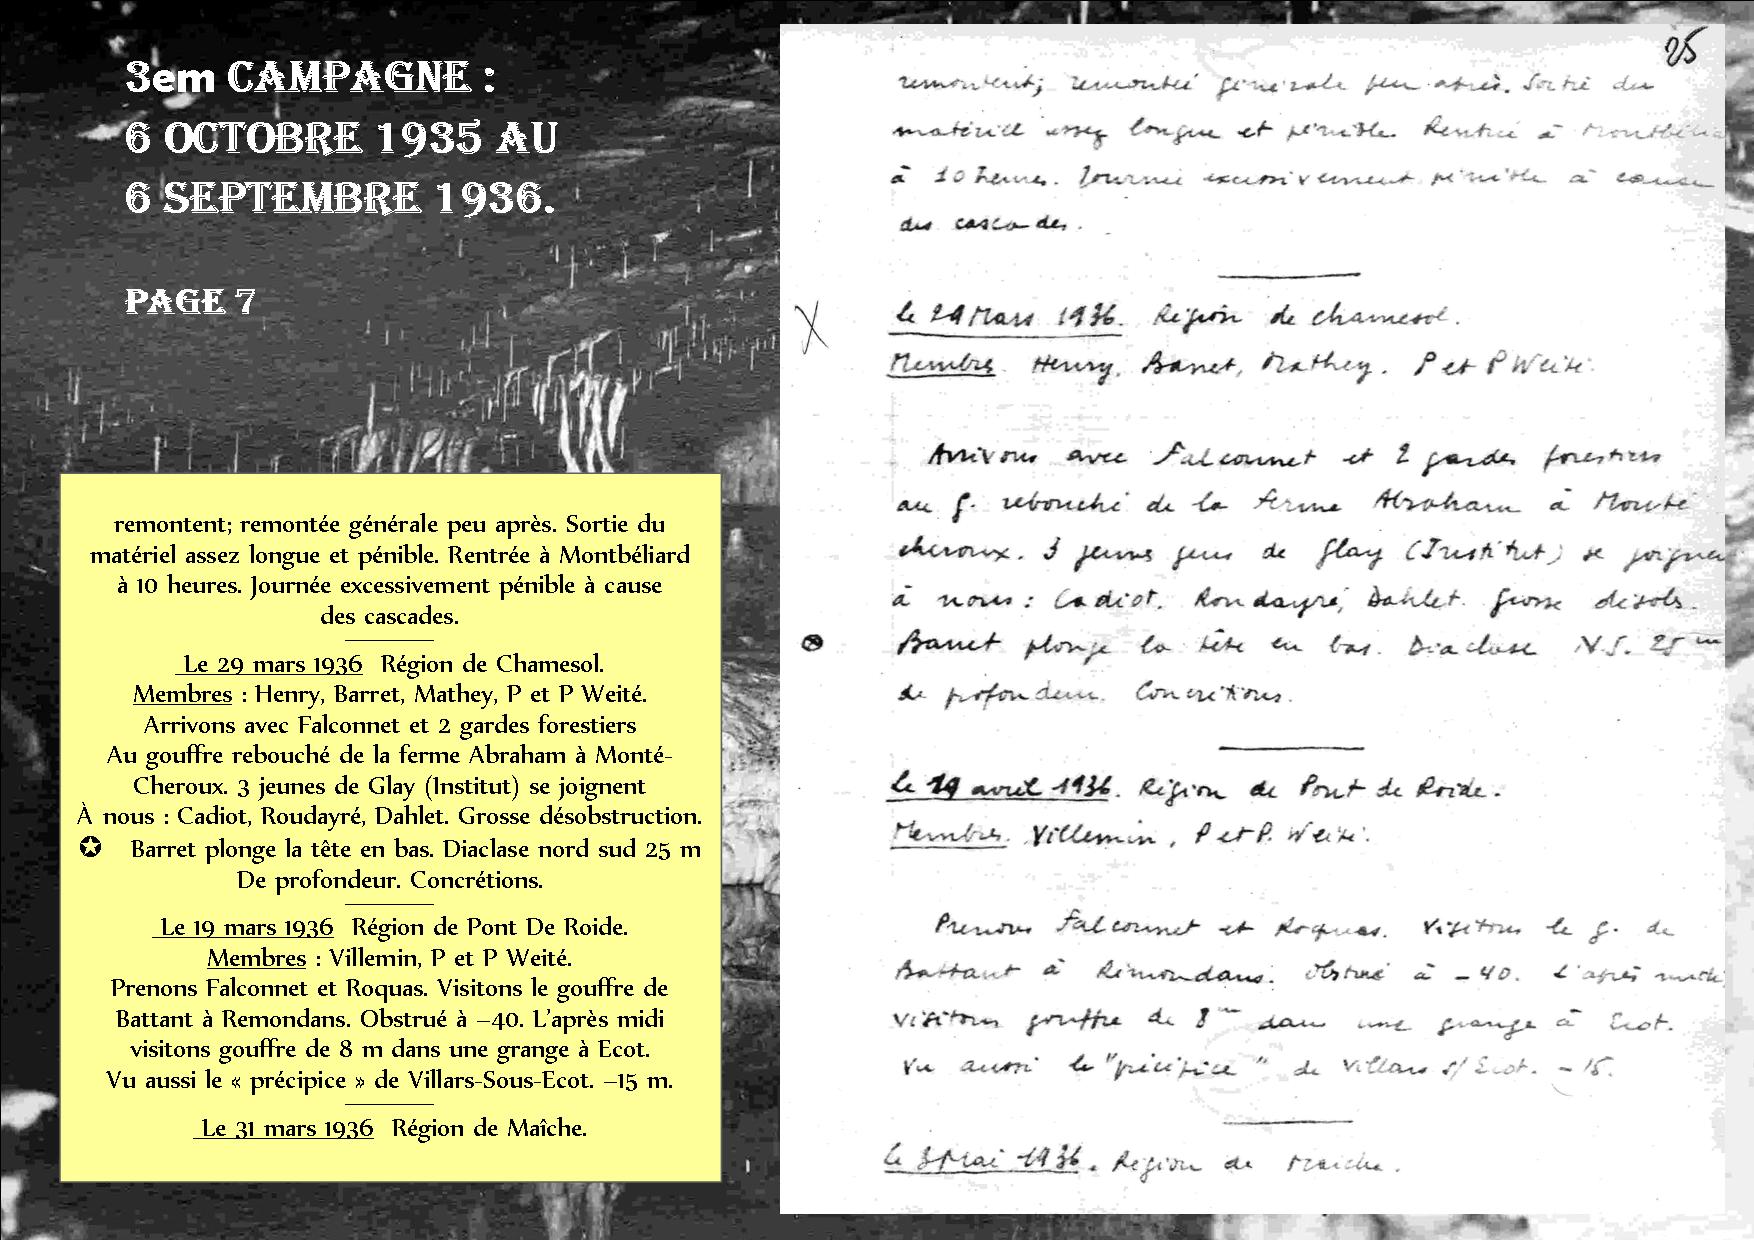 3em CAMPAGNE :
6 OCTOBRE 1935 AU
6 SEPTEMBRE 1936.
PAGE 7
remontent; remontée générale peu après. Sortie du
matériel assez longue et pénible. Rentrée à Montbéliard
à 10 heures. Journée excessivement pénible à cause
des cascades.
Le 29 mars 1936 Région de Chamesol.
Membres : Henry, Barret, Mathey, P et P Weité.
Arrivons avec Falconnet et 2 gardes forestiers
Au gouffre rebouché de la ferme Abraham à Monté-
Cheroux. 3 jeunes de Glay (Institut) se joignent
À nous : Cadiot, Roudayré, Dahlet. Grosse désobstruction.
✪ Barret plonge la tête en bas. Diaclase nord sud 25 m
De profondeur. Concrétions.
Le 19 mars 1936 Région de Pont De Roide.
Membres : Villemin, P et P Weité.
Prenons Falconnet et Roquas. Visitons le gouffre de
Battant à Remondans. Obstrué à –40. L'après midi
visitons gouffre de 8 m dans une grange à Ecot.
Vu aussi le « précipice » de Villars-Sous-Ecot. –15 m.
Le 31 mars 1936 Région de Maîche.
25
remontent; remontée générale peu après. Sortie du
matériel assez longue et pénible. Rentrée à Montbélia
à 10 heures. Journée excessivement pénible à cause
des cascades.
X le 29 Mars 1936. Région de chamesol.
Membres Henry, Barret, Mathey. P et P Weité.
Arrivons avec Falconnet et 2 gardes forestiers
au g. rebouché de la ferme Abraham à Monté
cheroux. 3 jeunes gens de Glay (Institut) se joignen
à nous : Cadiot, Roudayré, Dahlet. Grosse désobs.
⊗ Barret plonge la tête en bas. Diaclase N.S. 25 m
de profondeur. Concrétions.
le 19 avril 1936. Région de Pont de Roide.
Membres. Villemin, P et P. Weité.
Prenons Falconnet et Roquas. Visitons le g. de
Battant à Rémondans. Obstrué à -40. L'après midi
visitons gouffre de 8 m dans une grange à Ecot.
Vu aussi le "précipice" de Villars s/ Ecot. -15.
le 3 Mai 1936. Région de Maiche.